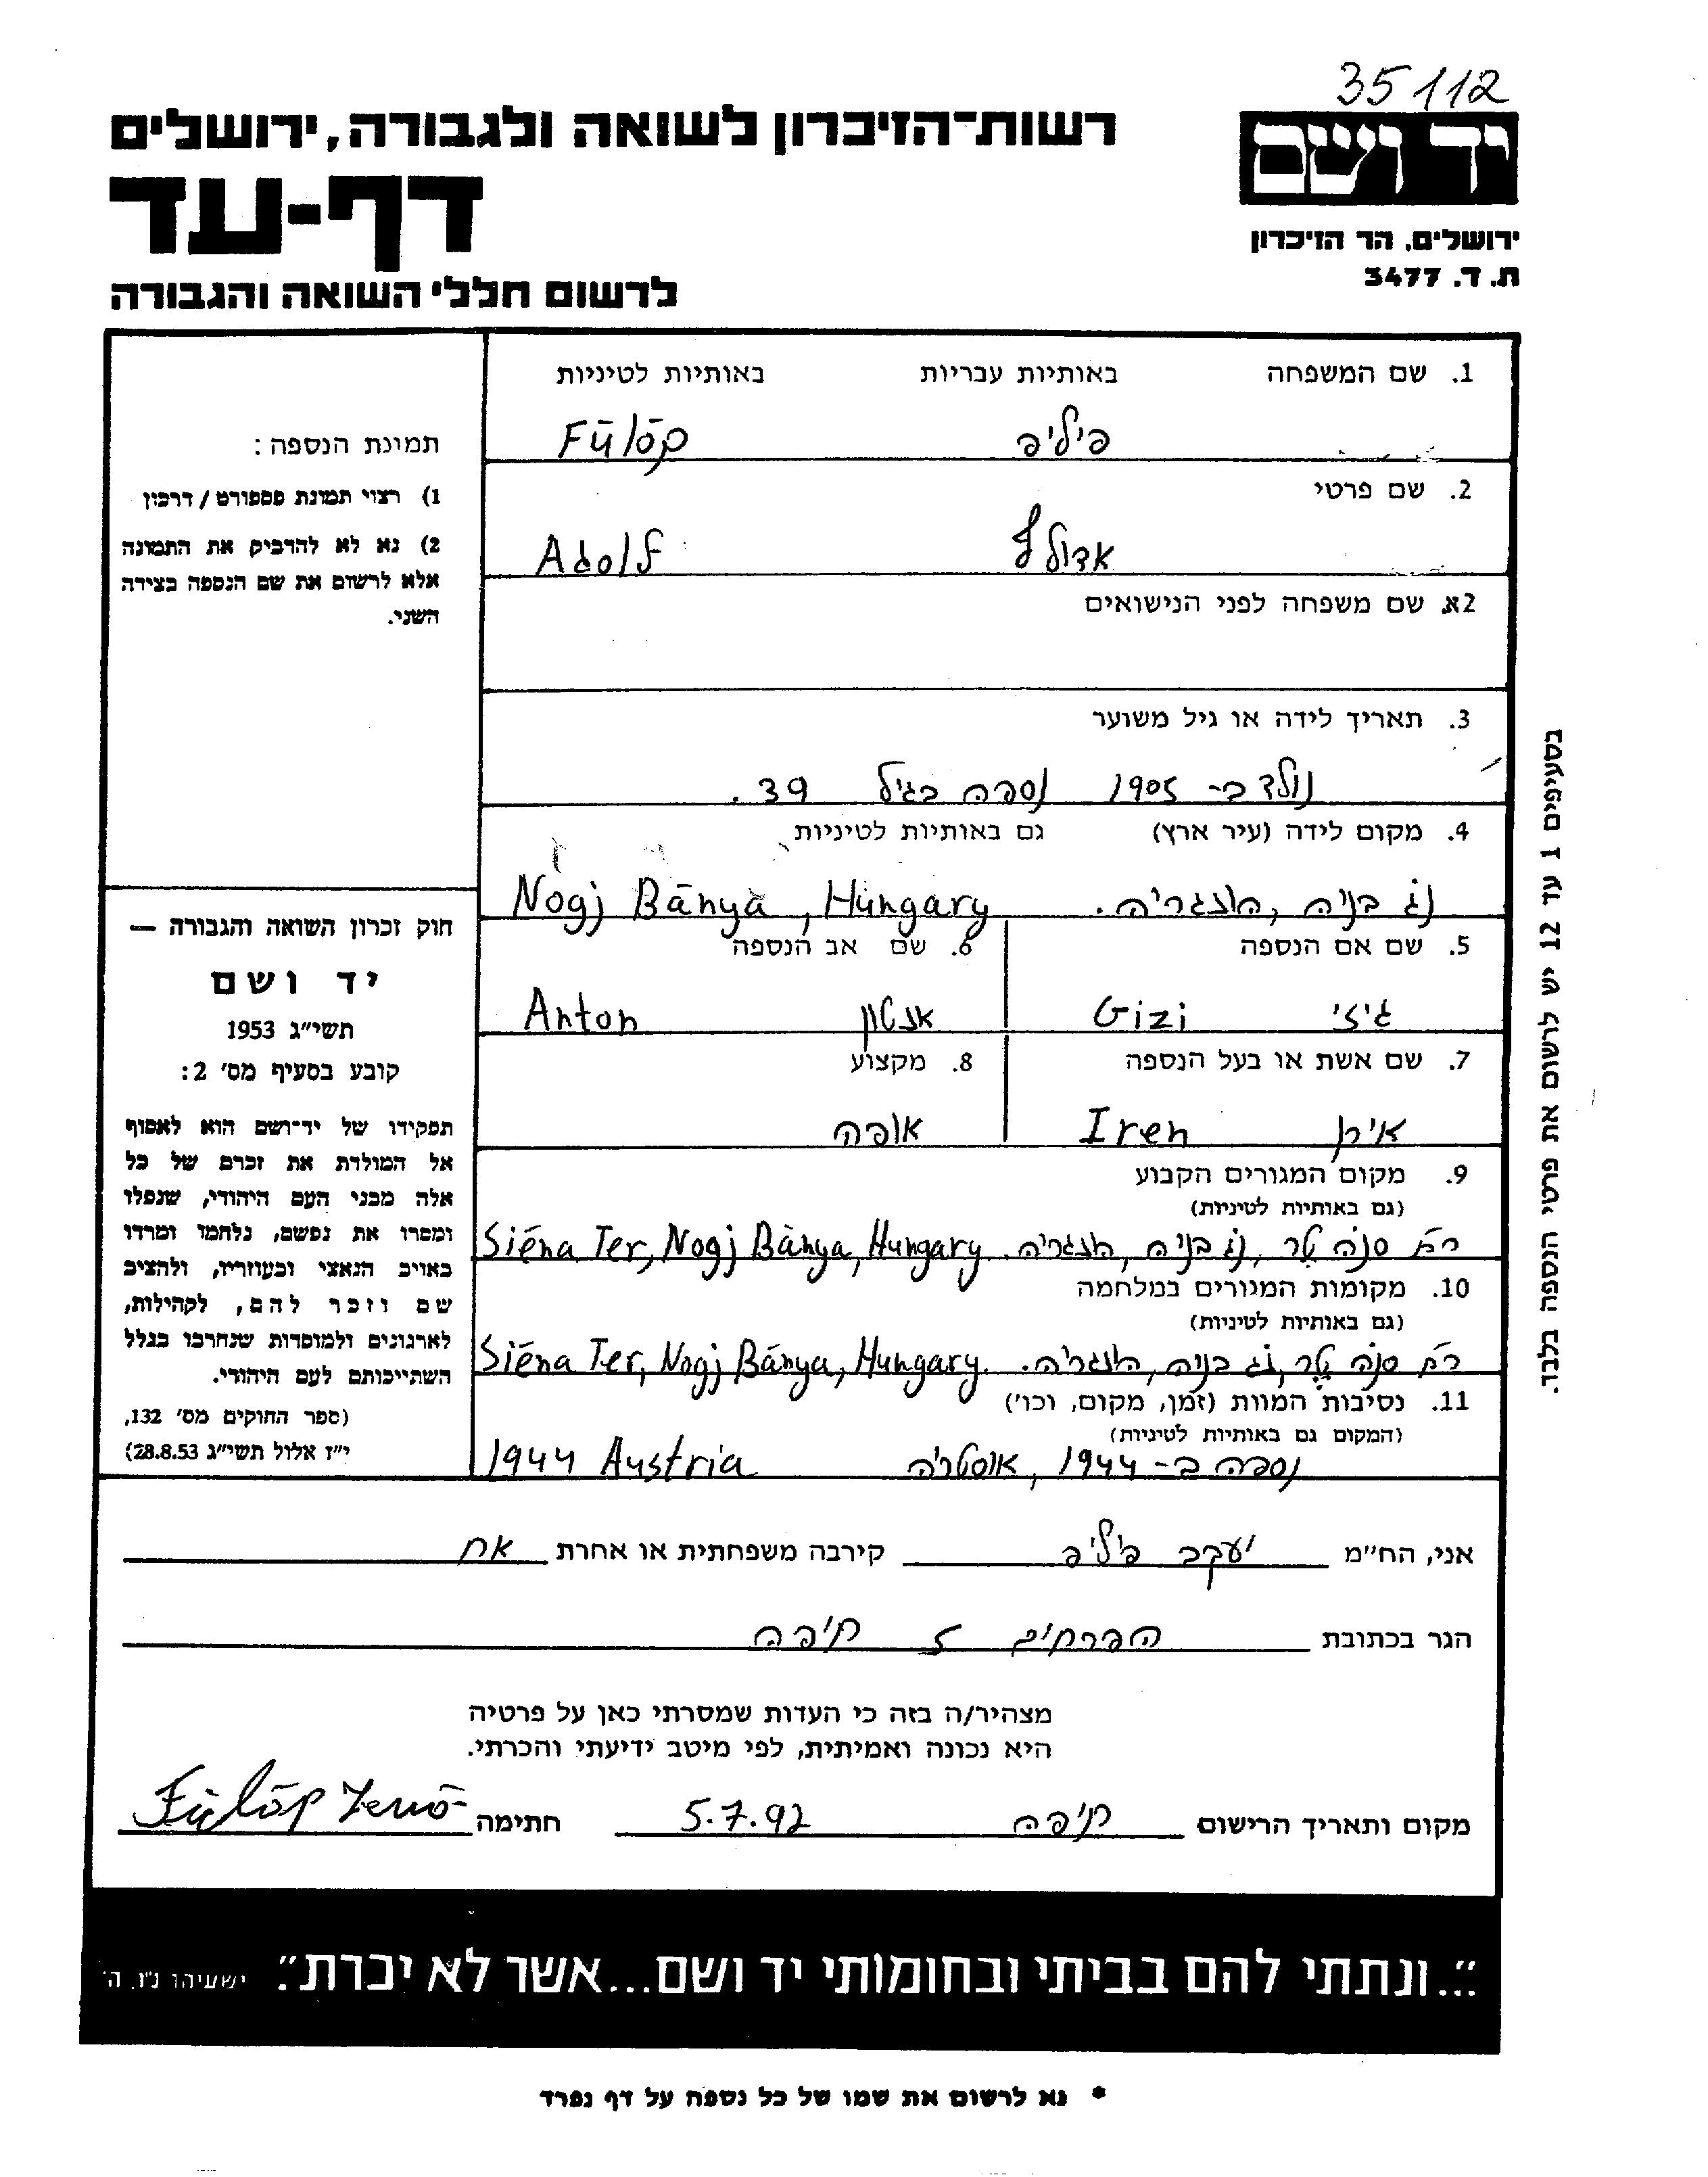 35112
יד ושם
ירושלים. הר הזיכרון
ת. ד. 3477
רשות-הזיכרון לשואה ולגבורה, ירושלים
דף-עד
לרשום חללי השואה והגבורה
1. שם המשפחה באותיות עבריות באותיות לטיניות
פיליפ Fülöp
2. שם פרטי
אדולף Adolf
2א. שם משפחה לפני הנישואים
3. תאריך לידה או גיל משוער
נולד ב- 1905 נספה בגיל 39.
4. מקום לידה (עיר ארץ) גם באותיות לטיניות
נג' בניה, הונגריה. Nogj Bánya, Hungary
5. שם אם הנספה 6. שם אב הנספה
גיזי Gizi אנטון Anton
7. שם אשת או בעל הנספה 8. מקצוע
אירן Iren אופה
9. מקום המגורים הקבוע
(גם באותיות לטיניות)
רח' סנה טר, נג' בניה, הונגריה. Siéna Ter, Nogj Bánya, Hungary
10. מקומות המגורים במלחמה
(גם באותיות לטיניות)
רח' סנה טר, נג' בניה, הונגריה. Siéna Ter, Nogj Bánya, Hungary.
11. נסיבות המוות (זמן, מקום, וכו')
(המקום גם באותיות לטיניות)
נספה ב- 1944, אוסטריה 1944 Austria
תמונת הנספה:
1) רצוי תמונת פספורט / דרכון
2) נא לא להדביק את התמונה
אלא לרשום את שם הנספה בצידה
השני.
חוק זכרון השואה והגבורה —
יד ושם
תשי"ג 1953
קובע בסעיף מס' 2:
תפקידו של יד-ושם הוא לאסוף
אל המולדת את זכרם של כל
אלה מבני העם היהודי, שנפלו
ומסרו את נפשם, נלחמו ומרדו
באויב הנאצי ובעוזריו, ולהציב
שם וזכר להם, לקהילות,
לארגונים ולמוסדות שנחרבו בגלל
השתייכותם לעם היהודי.
(ספר החוקים מס' 132,
י"ז אלול תשי"ג 28.8.53)
בסעיפים 1 עד 12 יש לרשום את פרטי הנספה בלבד.
אני, הח"מ יעקב פיליפ קירבה משפחתית או אחרת אח
הגר בכתובת הפרחים 5 חיפה
מצהיר/ה בזה כי העדות שמסרתי כאן על פרטיה
היא נכונה ואמיתית, לפי מיטב ידיעתי והכרתי.
מקום ותאריך הרישום חיפה 5.7.92 חתימה Fülöp Jenö
"...ונתתי להם בביתי ובחומותי יד ושם...אשר לא יכרת". ישעיהו נ"ו, ה'
* נא לרשום את שמו של כל נספה על דף נפרד